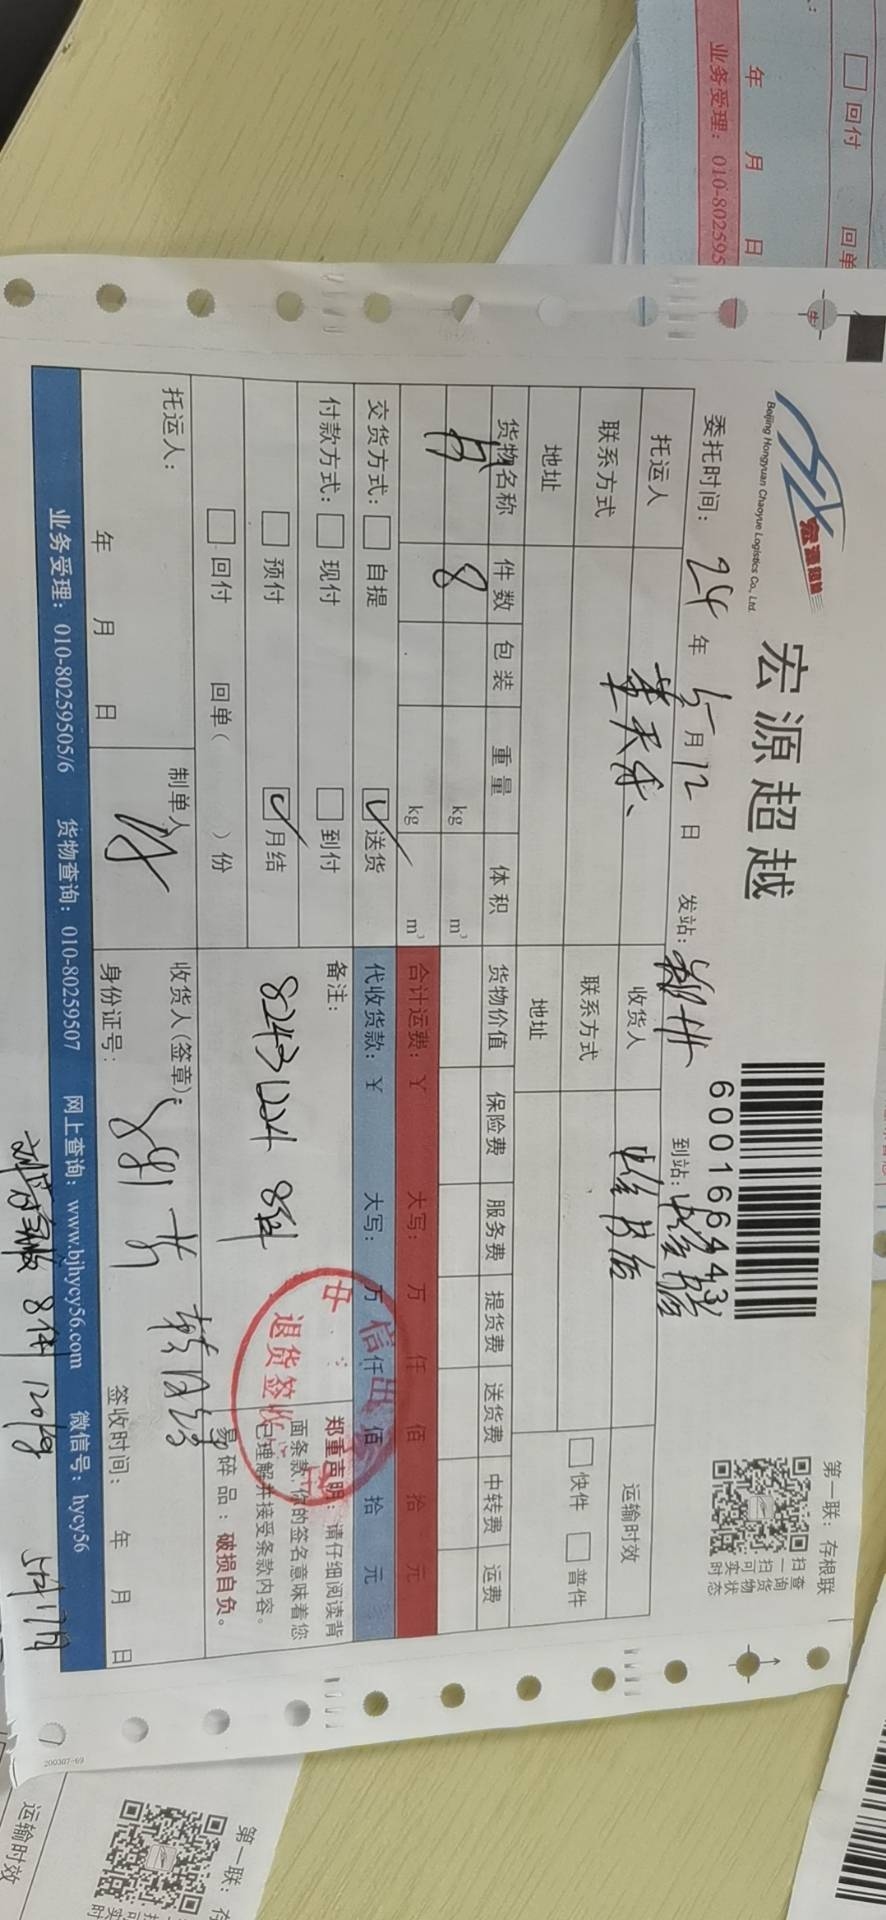 宏源超越
Beijing Hongyuan Chaoyue Logistics Co., Ltd.
宏源超越
6001664431
第一联：存根联
扫一扫可实时
查询货物状态
委托时间：24年5月12日 发站： 到站：
托运人 收货人 运输时效
联系方式 联系方式 快件 普件
地址 地址
货物名称 件数 包装 重量 体积 货物价值 保险费 服务费 提货费 送货费 中转费 运费
8 kg m³
kg m³ 合计运费：¥ 大写： 万 仟 佰 拾 元
交货方式： 自提 送货 代收货款：¥ 大写： 万 仟 佰 拾 元
付款方式： 现付 到付
预付 月结
回付 回单( )份
备注：
8243 1224 8件
郑重声明：请仔细阅读背
面条款，你的签名意味着您
已理解并接受条款内容。
易碎品：破损自负。
退货签收
托运人：
年 月 日
制单人
收货人(签章)：
身份证号：
签收时间： 年 月 日
业务受理：010-80259505/6 货物查询：010-80259507 网上查询：www.bjhycy56.com 微信号：hycy56
8件 120kg 5月17日
200307-69
回付 回单
年 月 日
业务受理：010-802595
第一联：存
运输时效